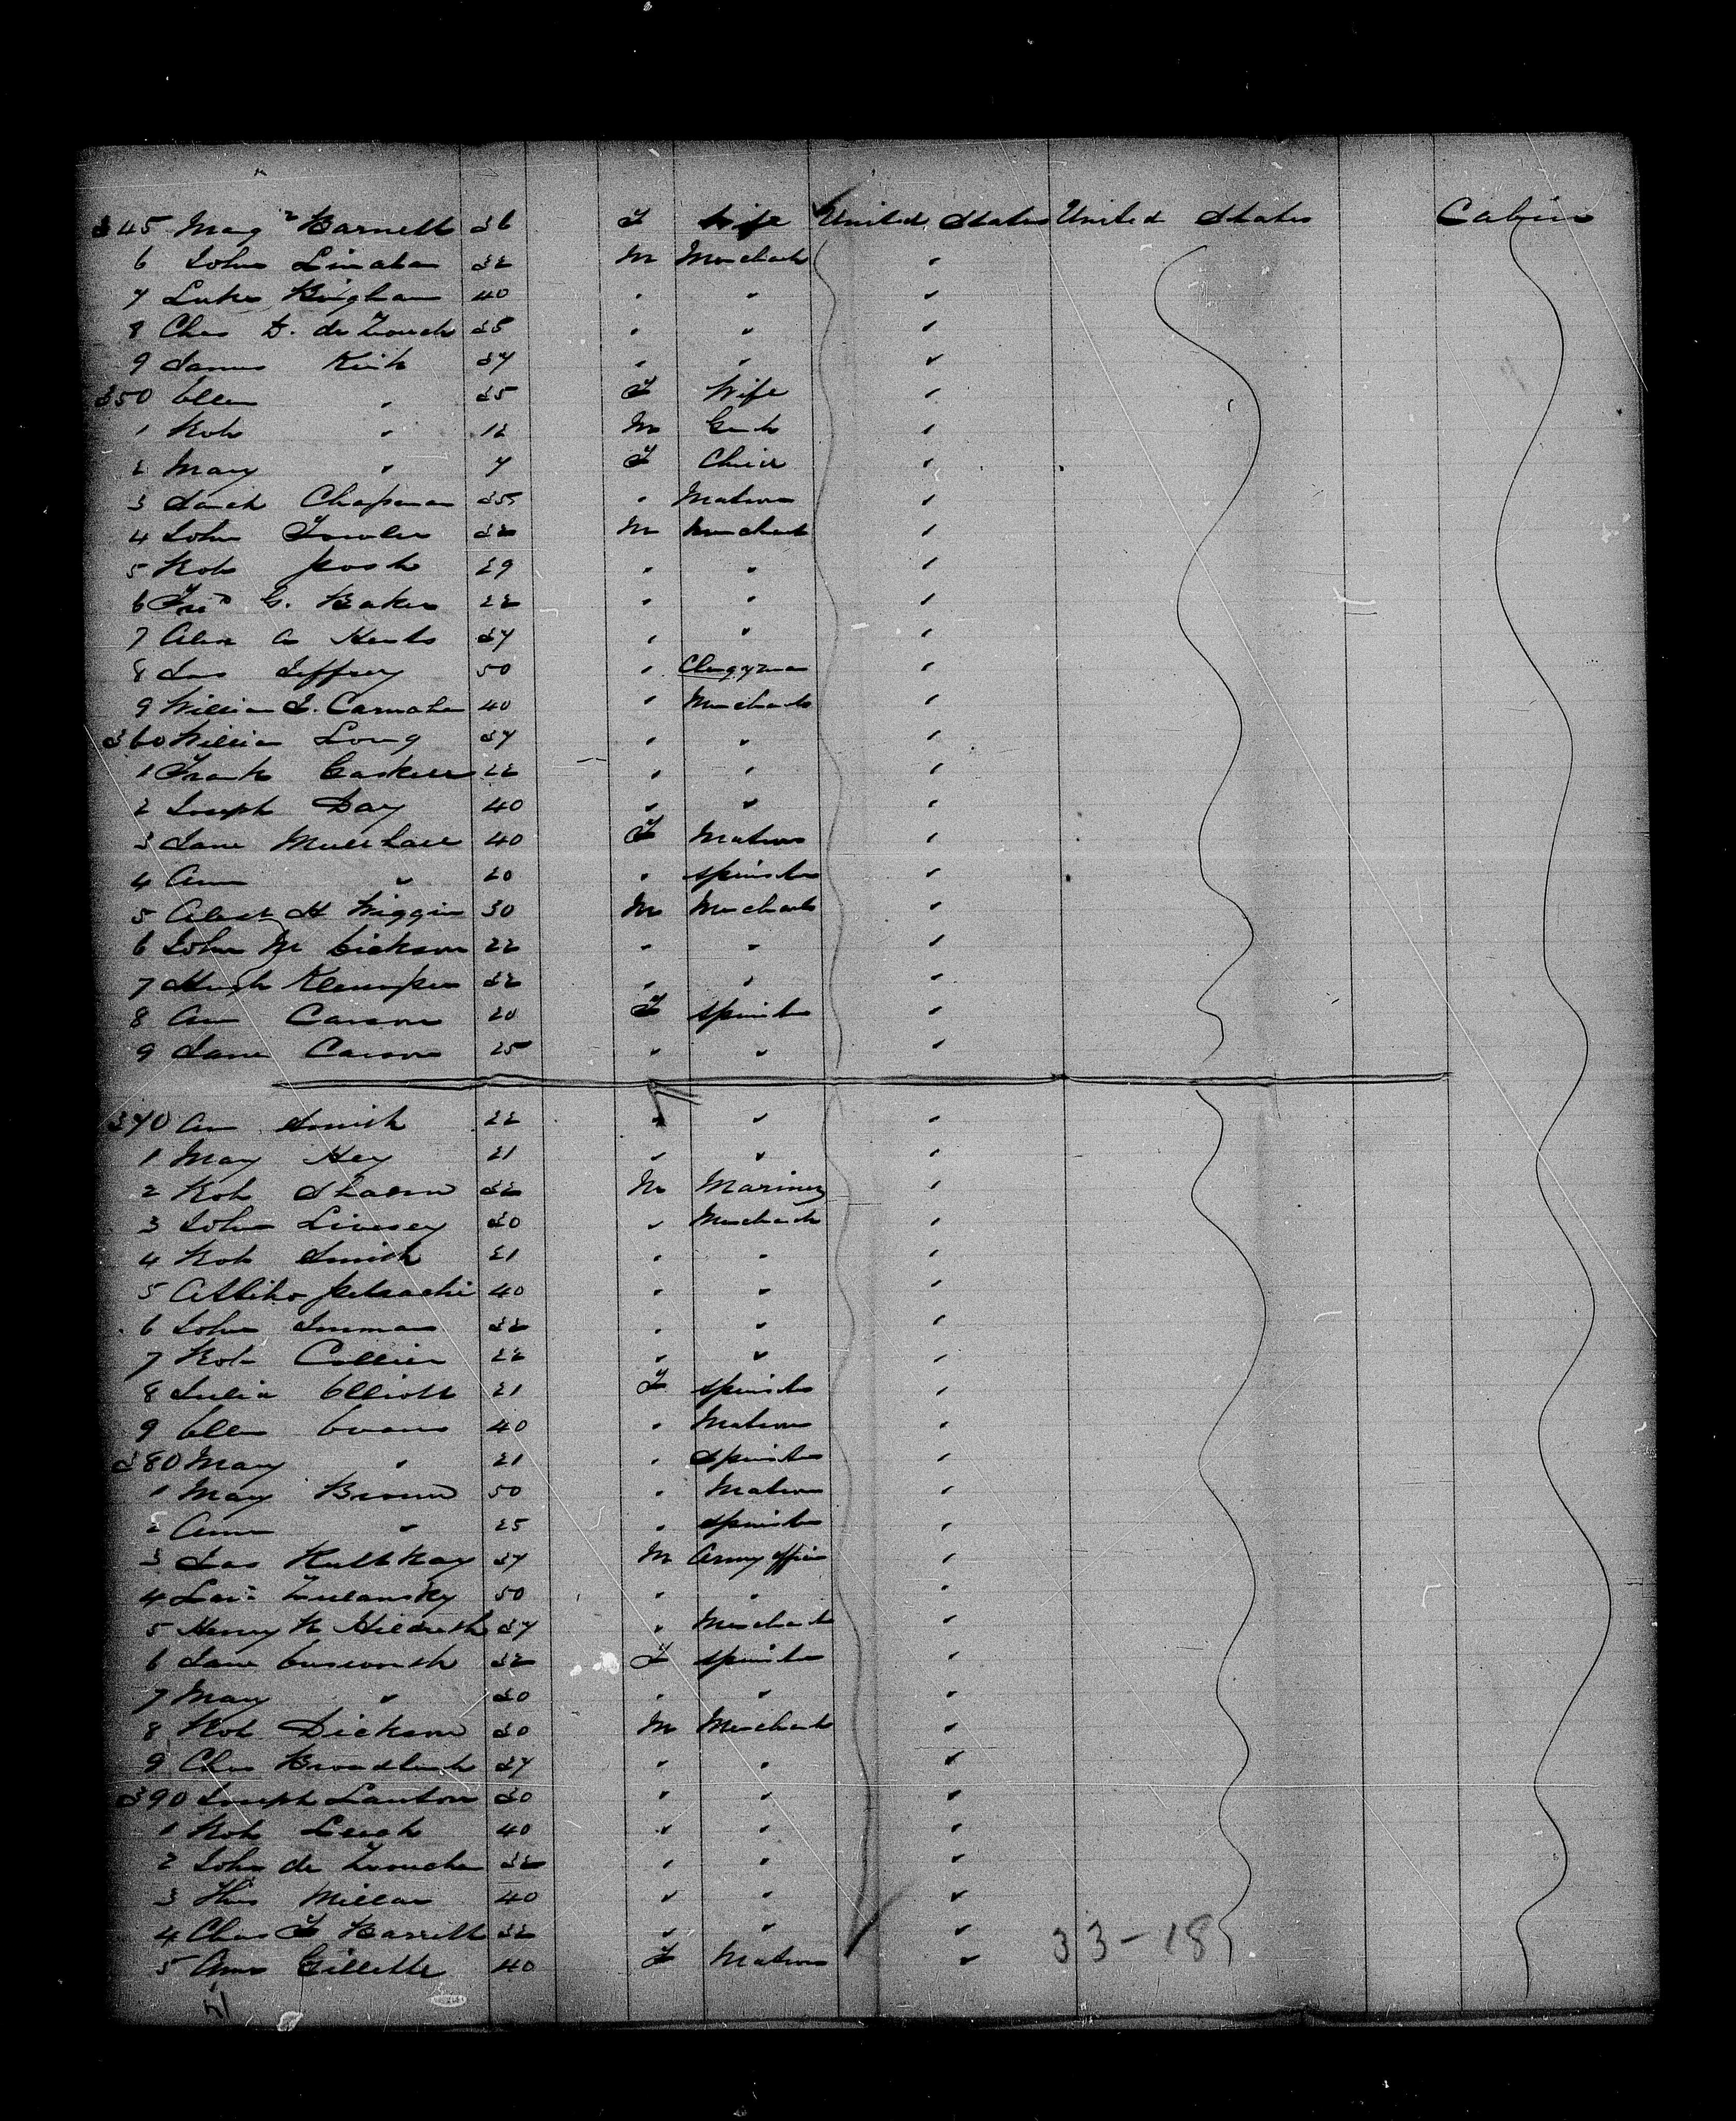 345 Mary Barnett 36 F Wife United States United States Cabin
6 John Linahan 32 M Merchant "
7 Luke Bingham 40 " " "
8 Chas D. de Zouch 35 " " "
9 James Kirk 37 " " "
350 Ellen " 35 F Wife "
1 Rob " 12 M Gent "
2 Mary " 7 F Child "
3 Sarah Chapman 35 " Matron "
4 John Fowler 32 M Merchant "
5 Rob Posh 29 " " "
6 Fred G. Baker 22 " " "
7 Alex A 37 " " "
8 Jas Jeffrey 50 " Clergyman "
9 William J. Carnahan 40 " Merchant "
360 William Long 37 " " "
1 Frank Gaskell 22 " " "
2 Joseph Day 40 " " "
3 Jane 40 F Matron "
4 Ann " 20 " Spinster "
5 Albert H Wiggin 30 M Merchant "
6 John M Dickson 22 " " "
7 Hugh 32 " " "
8 Ann Carson 20 F Spinster "
9 Jane Carson 25 " " "
370 Ann Smith 22 " " "
1 Mary Hey 21 " " "
2 Rob 32 M Mariner "
3 John Livesey 30 " Merchant "
4 Rob Smith 21 " " "
5 Attilio 40 " " "
6 John Inman 32 " " "
7 Rob Collier 22 " " "
8 Julia Elliott 21 F Spinster "
9 Ellen Evans 40 " Matron "
380 Mary " 21 " Spinster "
1 Mary Brown 50 " Matron "
2 Ann " 25 " Spinster "
3 Jas 37 M Army Officer "
4 Zulansky 50 " " "
5 Henry R Hildreth 37 " Merchant "
6 Jane 32 F Spinster "
7 Mary " 30 " " "
8 Rob Dickson 30 M Merchant "
9 Chas Broadbent 37 " " "
390 Joseph Lawton 30 " " "
1 Rob Leach 40 " " "
2 John de Zouche 32 " " "
3 Thos Millar 40 " " "
4 Chas F Barrett 32 " " " 33-18
5 Ann Gillette 40 F Matron "
51